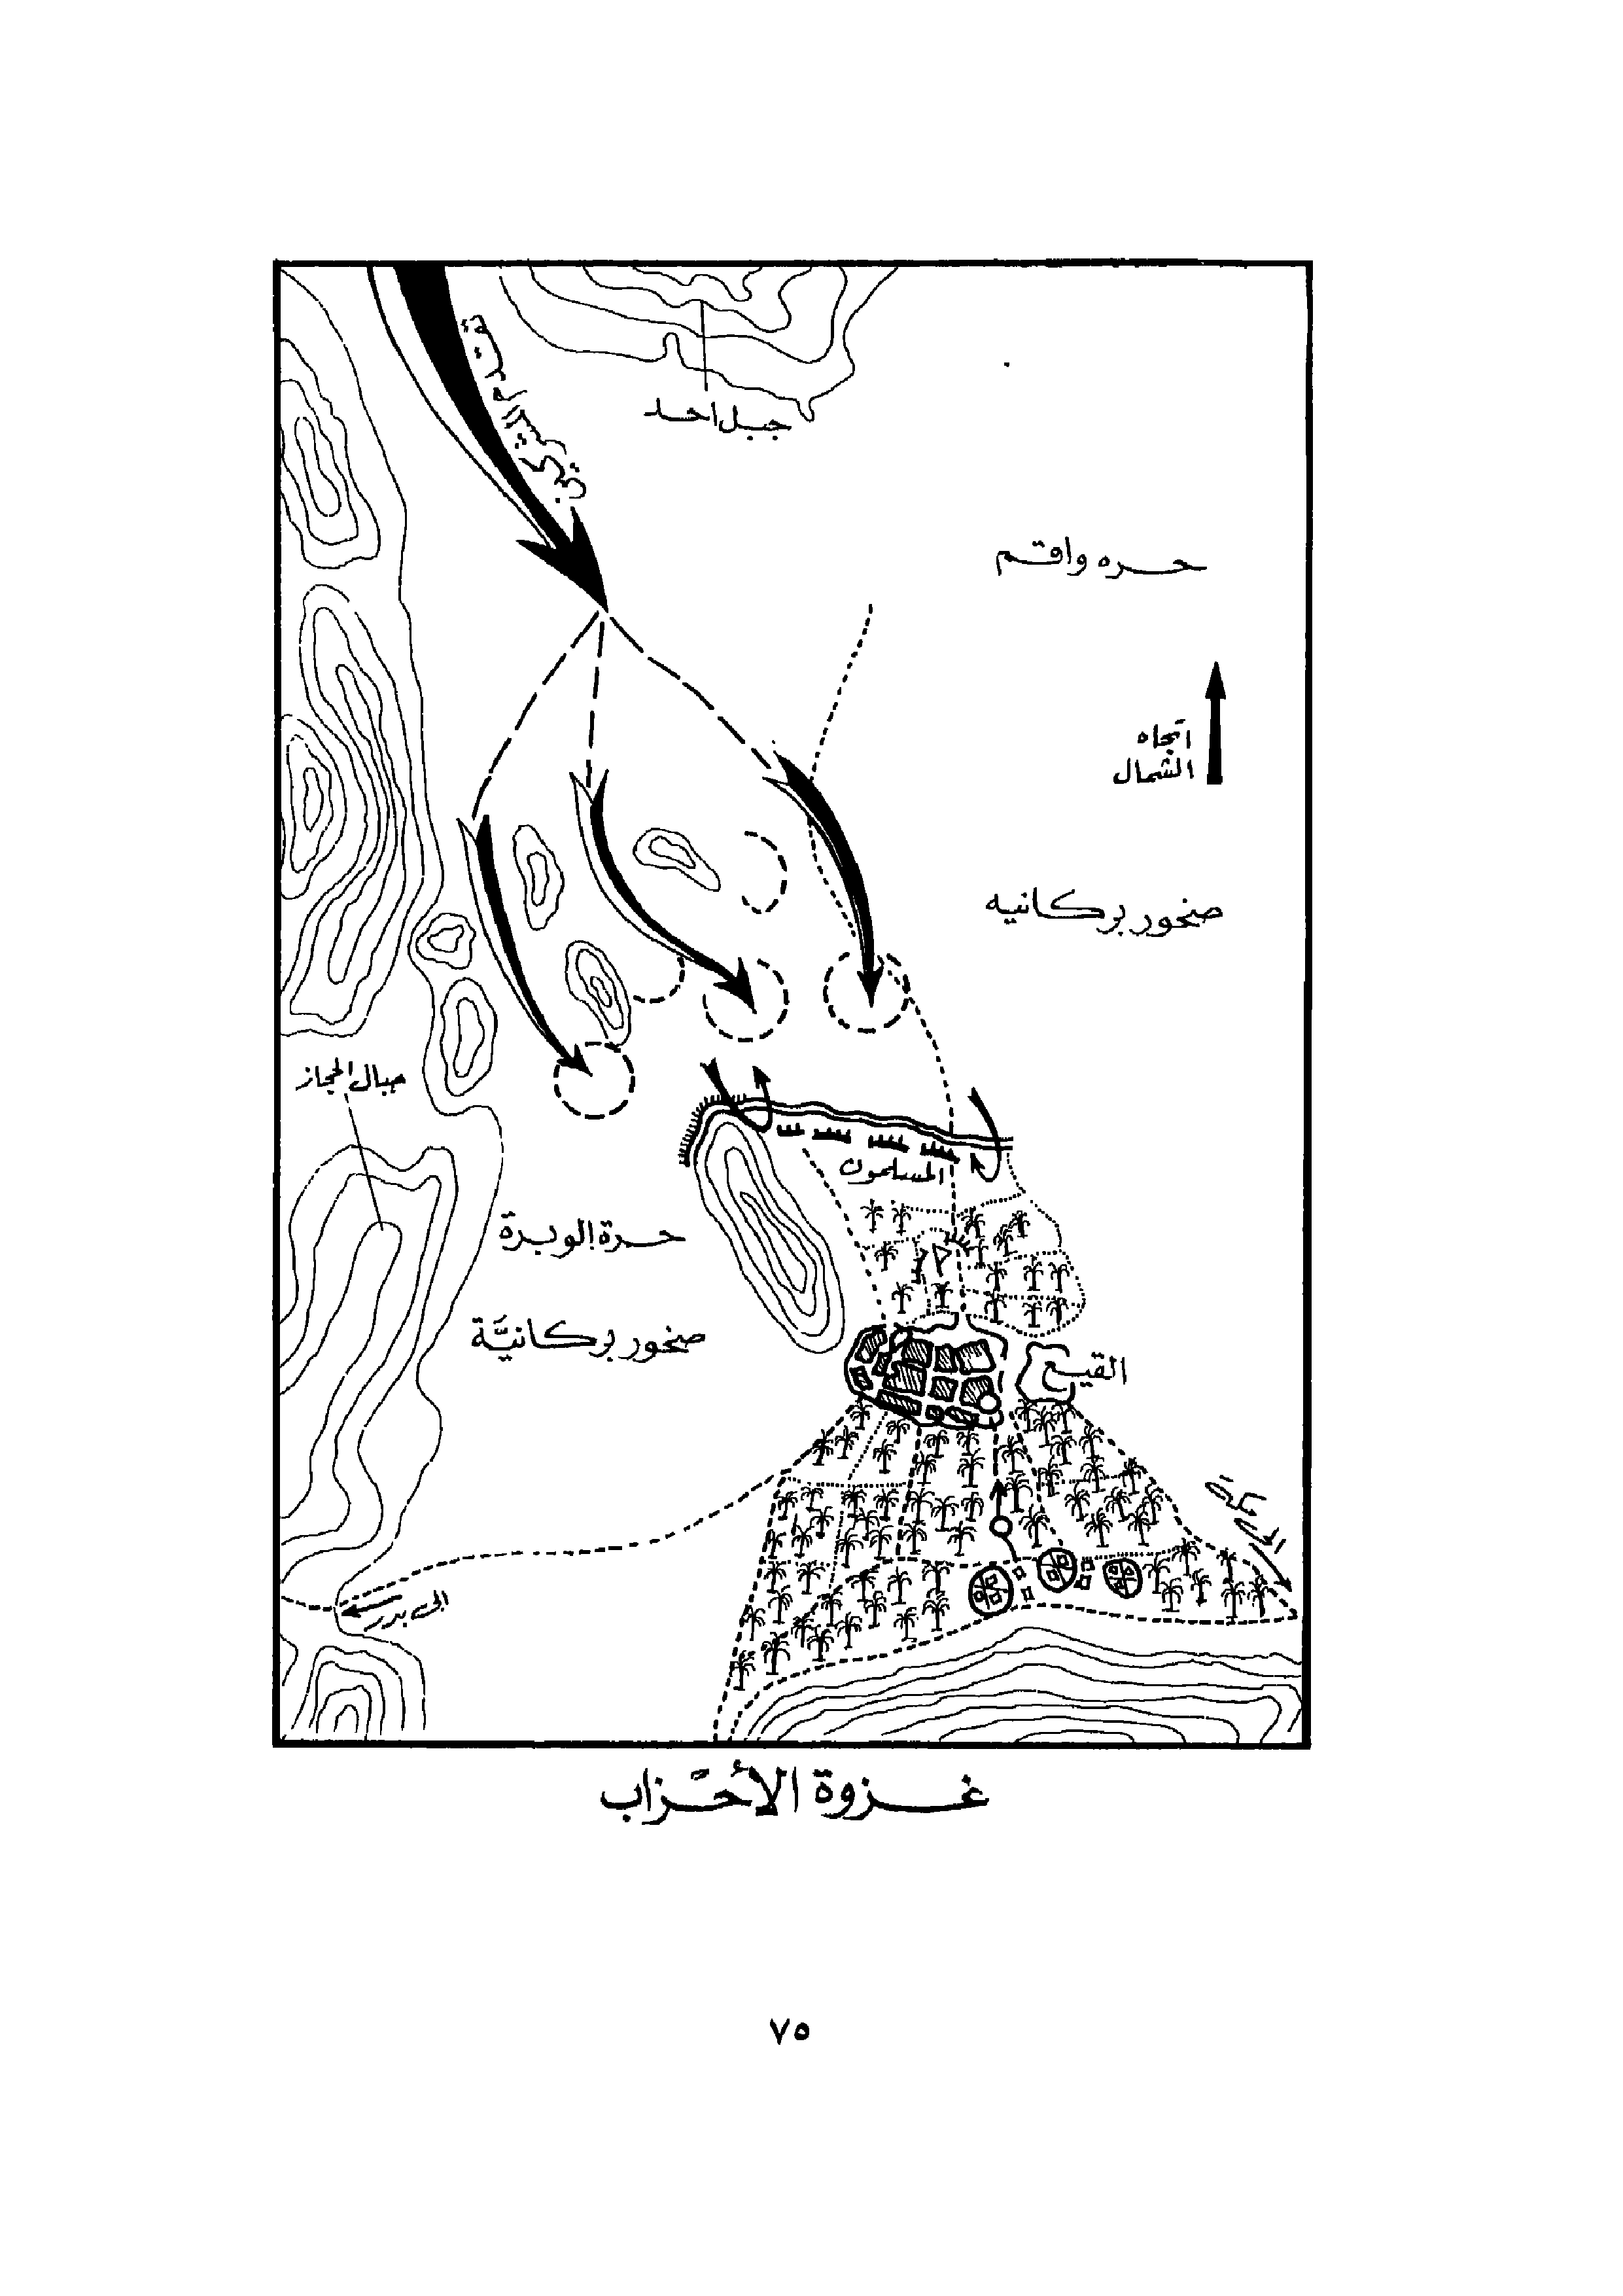 جبل احد
حره واقم
اتجاه
الشمال
صخور بركانيه
جبال الحجاز
المسلمون
حرة الوبرة
صخور بركانيّة
القيع
الى مكة
الى بدر
غزوة الأحزاب
٧٥